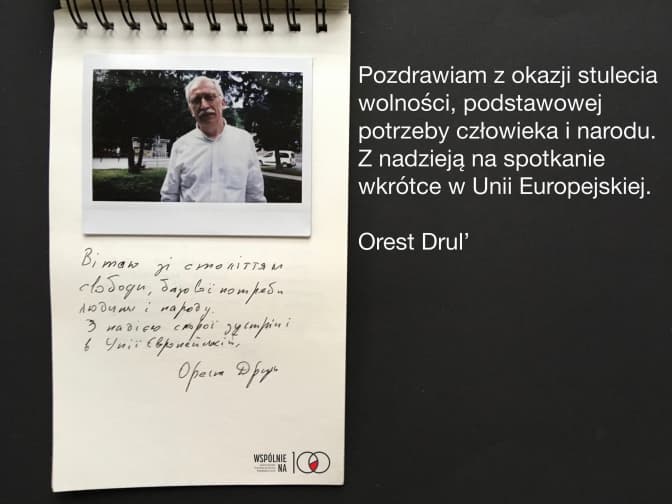 Pozdrawiam z okazji stulecia
wolności, podstawowej
potrzeby człowieka i narodu.
Z nadzieją na spotkanie
wkrótce w Unii Europejskiej.
Orest Drul’
Вітаю зі століттям
свободи, базової потреби
людини і народу.
З надією скорої зустрічі
в Унії Європейській,
Орест Друль
WSPÓLNIE
NA 100